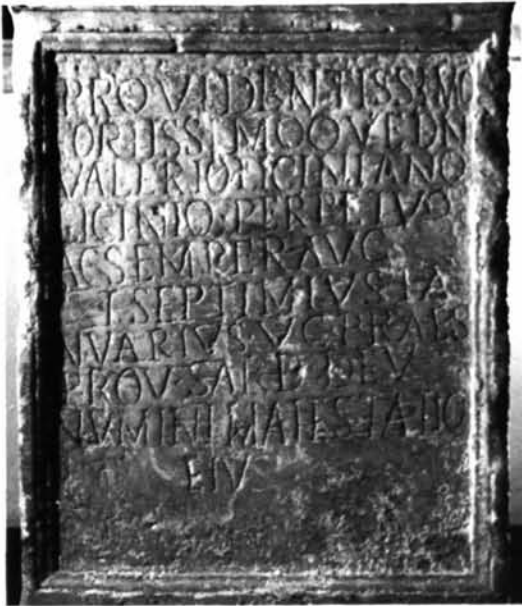 PROVIDENTISSIMO
FORTISSIMOQVE DN
VALERIO LICINIANO
LICINIO PERPETVO
AC SEMPER AVG
T SEPTIMIVS IA
NVARIVS V C PRAES
PROV SARD DEV
NVMINI MAIESTATIQ
EIV